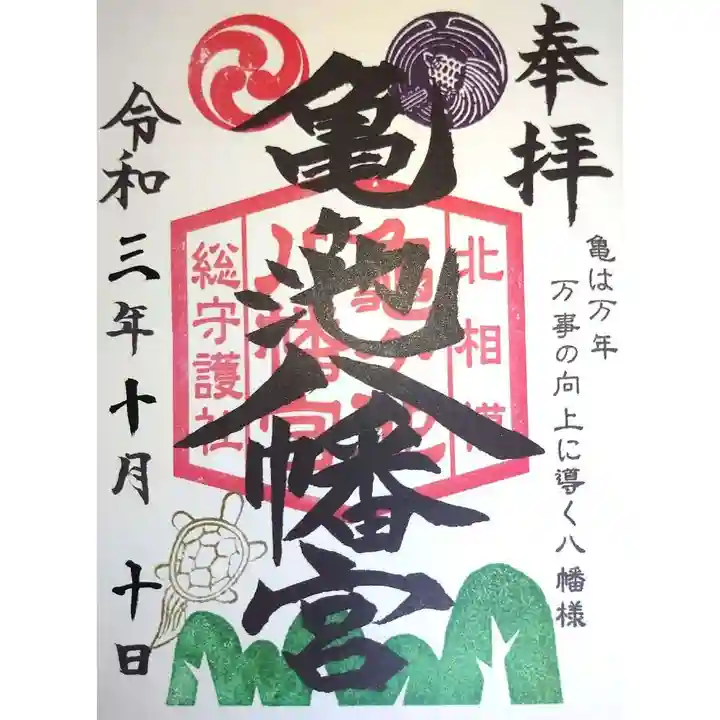 奉拝
亀は万年
万事の向上に導く八幡様
北相模
総守護社
亀池八幡宮
令和三年十月十日